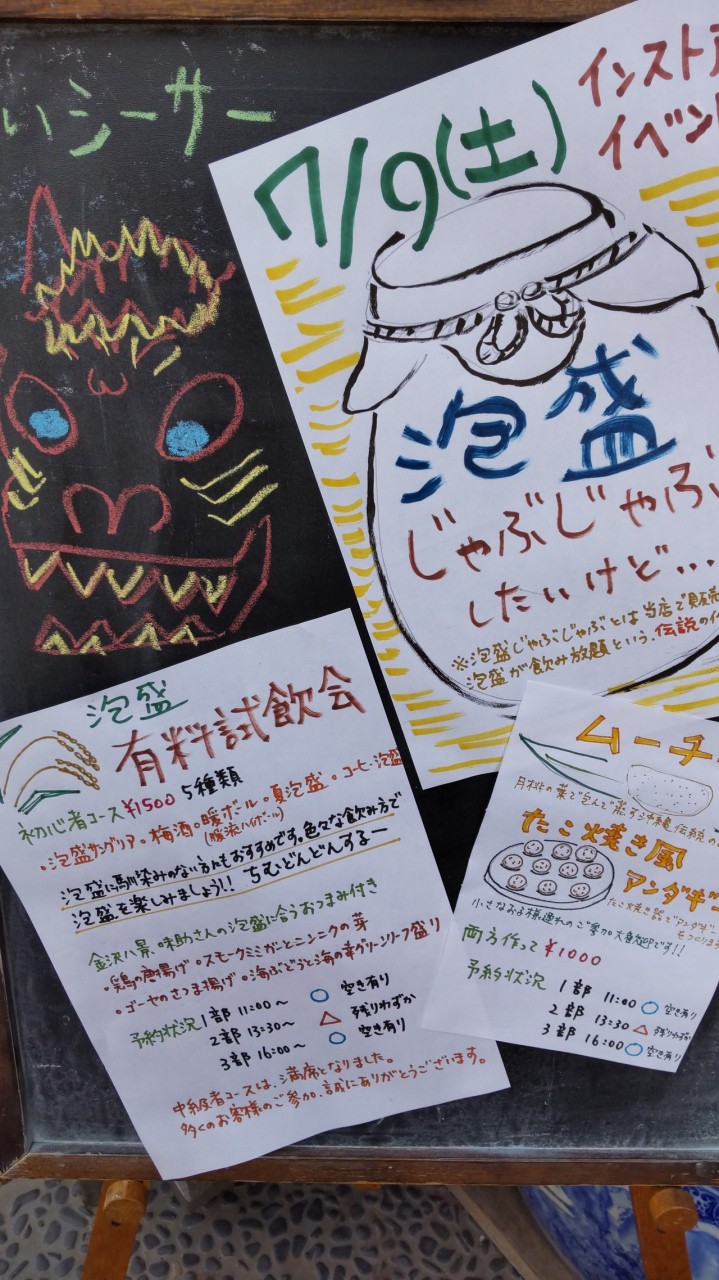 いシーサー
7/9(土)
インスト
イベン
泡盛
じゃぶじゃぶ
したいけど...
※泡盛じゃぶじゃぶとは当店で販売
泡盛が飲み放題という、伝説のイ
泡盛
有料試飲会
初心者コース ¥1500 5種類
・泡盛サングリア・梅酒・暖ボール・夏泡盛・コーヒー泡盛
(暖流ハイボール)
泡盛に馴染みのない方にもおすすめです。色々な飲み方で
泡盛を楽しみましょう!! ちむどんどんするー
金沢八景、味助さんの泡盛に合うおつまみ付き
・鶏の唐揚げ・スモークミミガーとニンニクの芽
・ゴーヤのさつま揚げ・海ぶどうと海の幸グリーンリーフ盛り
予約状況 1部 11:00〜 ○ 空き有り
2部 13:30〜 △ 残りわずか
3部 16:00〜 ○ 空き有り
中級者コースは、満席となりました。
多くのお客様のご参加、誠にありがとうございます。
ムーチ
月桃の葉で包んで蒸す沖縄伝統の
たこ焼き風
アンダギ
たこ焼き器でアンダギ
小さなお子様連れのご参加大歓迎です!!
両方作って ¥1000
予約状況 1部 11:00 ○ 空き有り
2部 13:30 △ 残りわずか
3部 16:00 ○ 空き有り